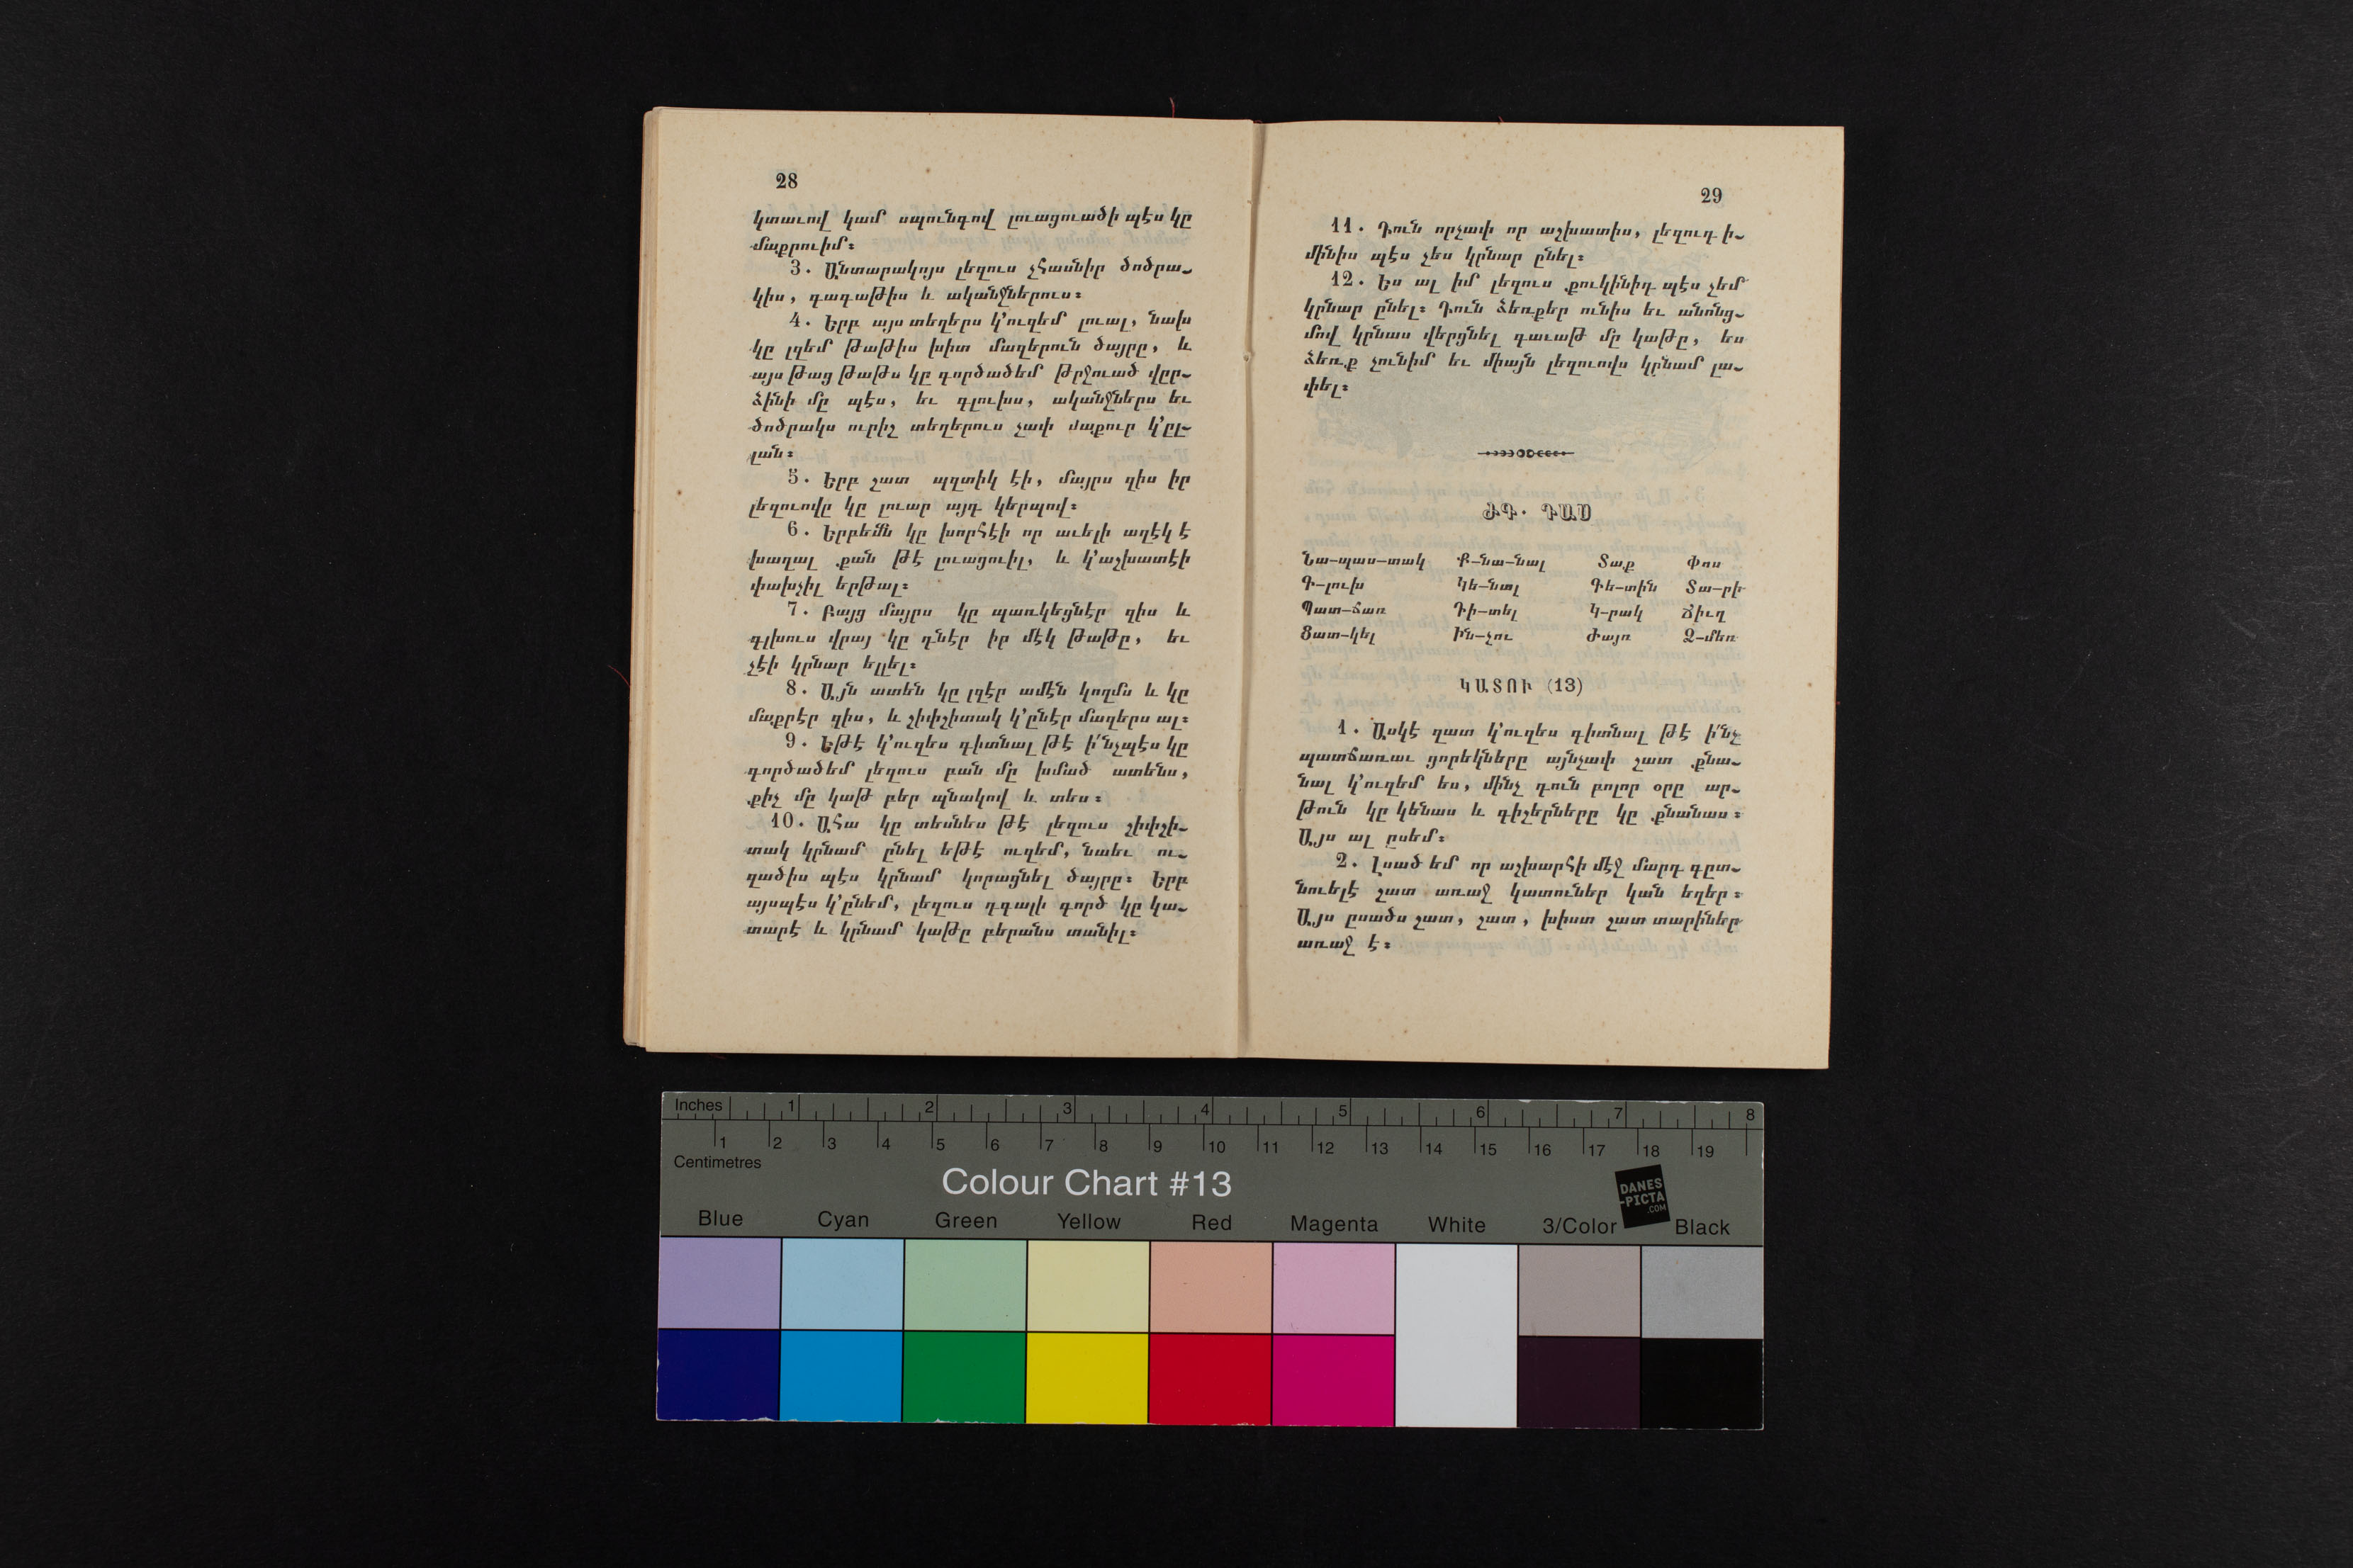 28
կտաւով կամ սպունգով լուացուածի պէս կը
մաքրուիմ։
3. Անտարակոյս լեզուս չհասնիր ծոծրա-
կիս, գագաթիս և ականջներուս։
4. Երբ այս տեղերս կ՚ուզեմ լուալ, նախ
կը լզեմ թաթիս խիտ մազերուն ծայրը, և
այս թաց թաթս կը գործածեմ թրջուած վըր-
ձինի մը պէս, եւ գլուխս, ականջներս եւ
ծոծրակս ուրիշ տեղերուս չափ մաքուր կ՚ըլ-
լան։
5. Երբ շատ պզտիկ էի, մայրս զիս իր
լեզուովը կը լուար այդ կերպով։
6. Երբեմն կը խորհէի որ աւելի աղէկ է
խաղալ քան թէ լուացուիլ, և կ՚աշխատէի
փախչիլ երթալ։
7. Բայց մայրս կը պառկեցնէր զիս և
գլխուս վրայ կը դնէր իր մէկ թաթը, եւ
չէի կրնար ելլել։
8. Այն ատեն կը լզէր ամէն կողմս և կը
մաքրէր զիս, և շիփշիտակ կ՚ընէր մազերս ալ։
9. Եթէ կ՚ուզես գիտնալ թէ ի՛նչպէս կը
գործածեմ լեզուս բան մը խմած ատենս,
քիչ մը կաթ բեր պնակով և տես։
10. Ահա կը տեսնես թէ լեզուս շիփշի-
տակ կրնամ ընել եթէ ուզեմ, նաեւ ու-
զածիս պէս կրնամ կորացնել ծայրը։ Երբ
այսպէս կ՚ընեմ, լեզուս դգալի գործ կը կա-
տարէ և կրնամ կաթը բերանս տանիլ։
29
11. Դուն որչափ որ աշխատիս, լեզուդ ի-
մինիս պէս չես կրնար ընել։
12. Ես ալ իմ լեզուս քուկինիդ պէս չեմ
կրնար ընել։ Դուն ձեռքեր ունիս եւ անոնց-
մով կրնաս վերցնել գաւաթ մը կաթը, ես
ձեռք չունիմ եւ միայն լեզուովս կրնամ լա-
փել։
ԺԳ. ԴԱՍ
Նա-պաս-տակ Ք-նա-նալ Տաք Փոս
Գ-լուխ Կե-նալ Գե-տին Տա-րի
Պատ-ճառ Դի-տել Կ-րակ Ճիւղ
Ցատ-կել Ին-չու Ժայռ Ձ-մեռ
ԿԱՏՈՒ (13)
1. Ասկէ զատ կ՚ուզես գիտնալ թէ ի՛նչ
պատճառաւ ցորեկները այնչափ շատ քնա-
նալ կ՚ուզեմ ես, մինչ դուն բոլոր օրը ար-
թուն կը կենաս և գիշերները կը քնանաս։
Այս ալ ըսեմ։
2. Լսած եմ որ աշխարհի մէջ մարդ գըտ-
նուելէ շատ առաջ կատուներ կան եղեր։
Այս ըսածս շատ, շատ, խիստ շատ տարիներ
առաջ է։
Inches 1 2 3 4 5 6 7 8
1 2 3 4 5 6 7 8 9 10 11 12 13 14 15 16 17 18 19
Centimetres
Colour Chart #13
DANES
-PICTA
.COM
Blue Cyan Green Yellow Red Magenta White 3/Color Black